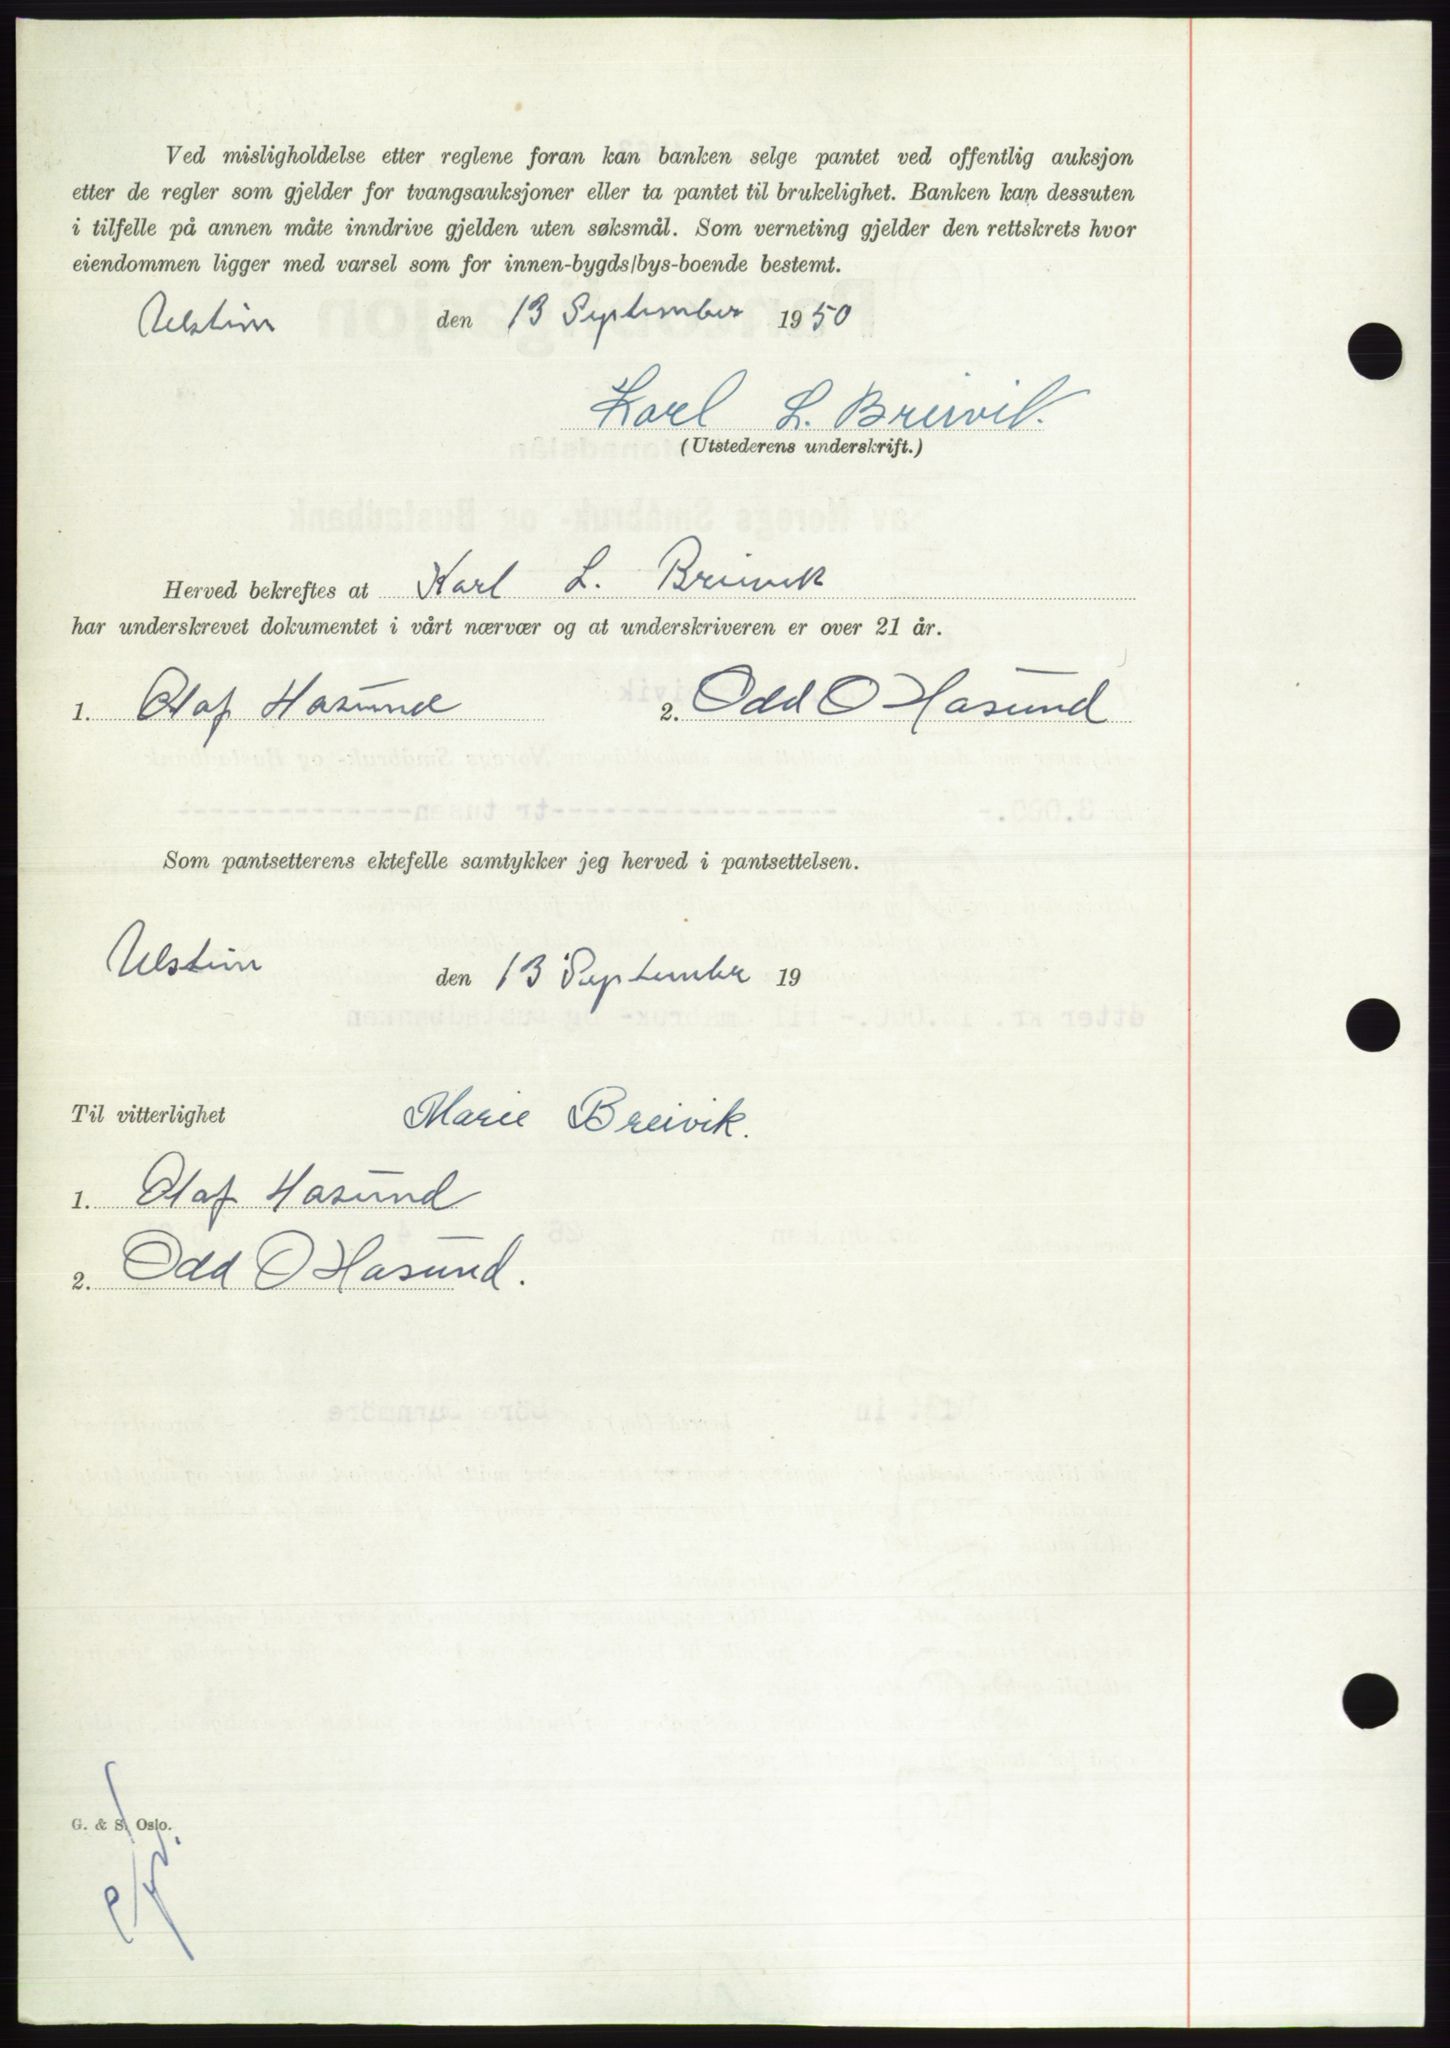 Ved misligholdelse etter reglene foran kan banken selge pantet ved offentlig auksjon
etter de regler som gjelder for tvangsauksjoner eller ta pantet til brukelighet. Banken kan dessuten
i tilfelle på annen måte inndrive gjelden uten søksmål. Som verneting gjelder den rettskrets hvor
eiendommen ligger med varsel som for innen-bygds/bys-boende bestemt.
Ulstein den 13 September 1950
Karl L. Breivik.
(Utstederens underskrift.)
Herved bekreftes at Karl L. Breivik
har underskrevet dokumentet i vårt nærvær og at underskriveren er over 21 år.
1. Olaf Hasund 2. Odd O Hasund
Som pantsetterens ektefelle samtykker jeg herved i pantsettelsen.
Ulstein den 13 September 19
Til vitterlighet Marie Breivik.
1. Olaf Hasund
2. Odd O Hasund.
G. & S. Oslo.